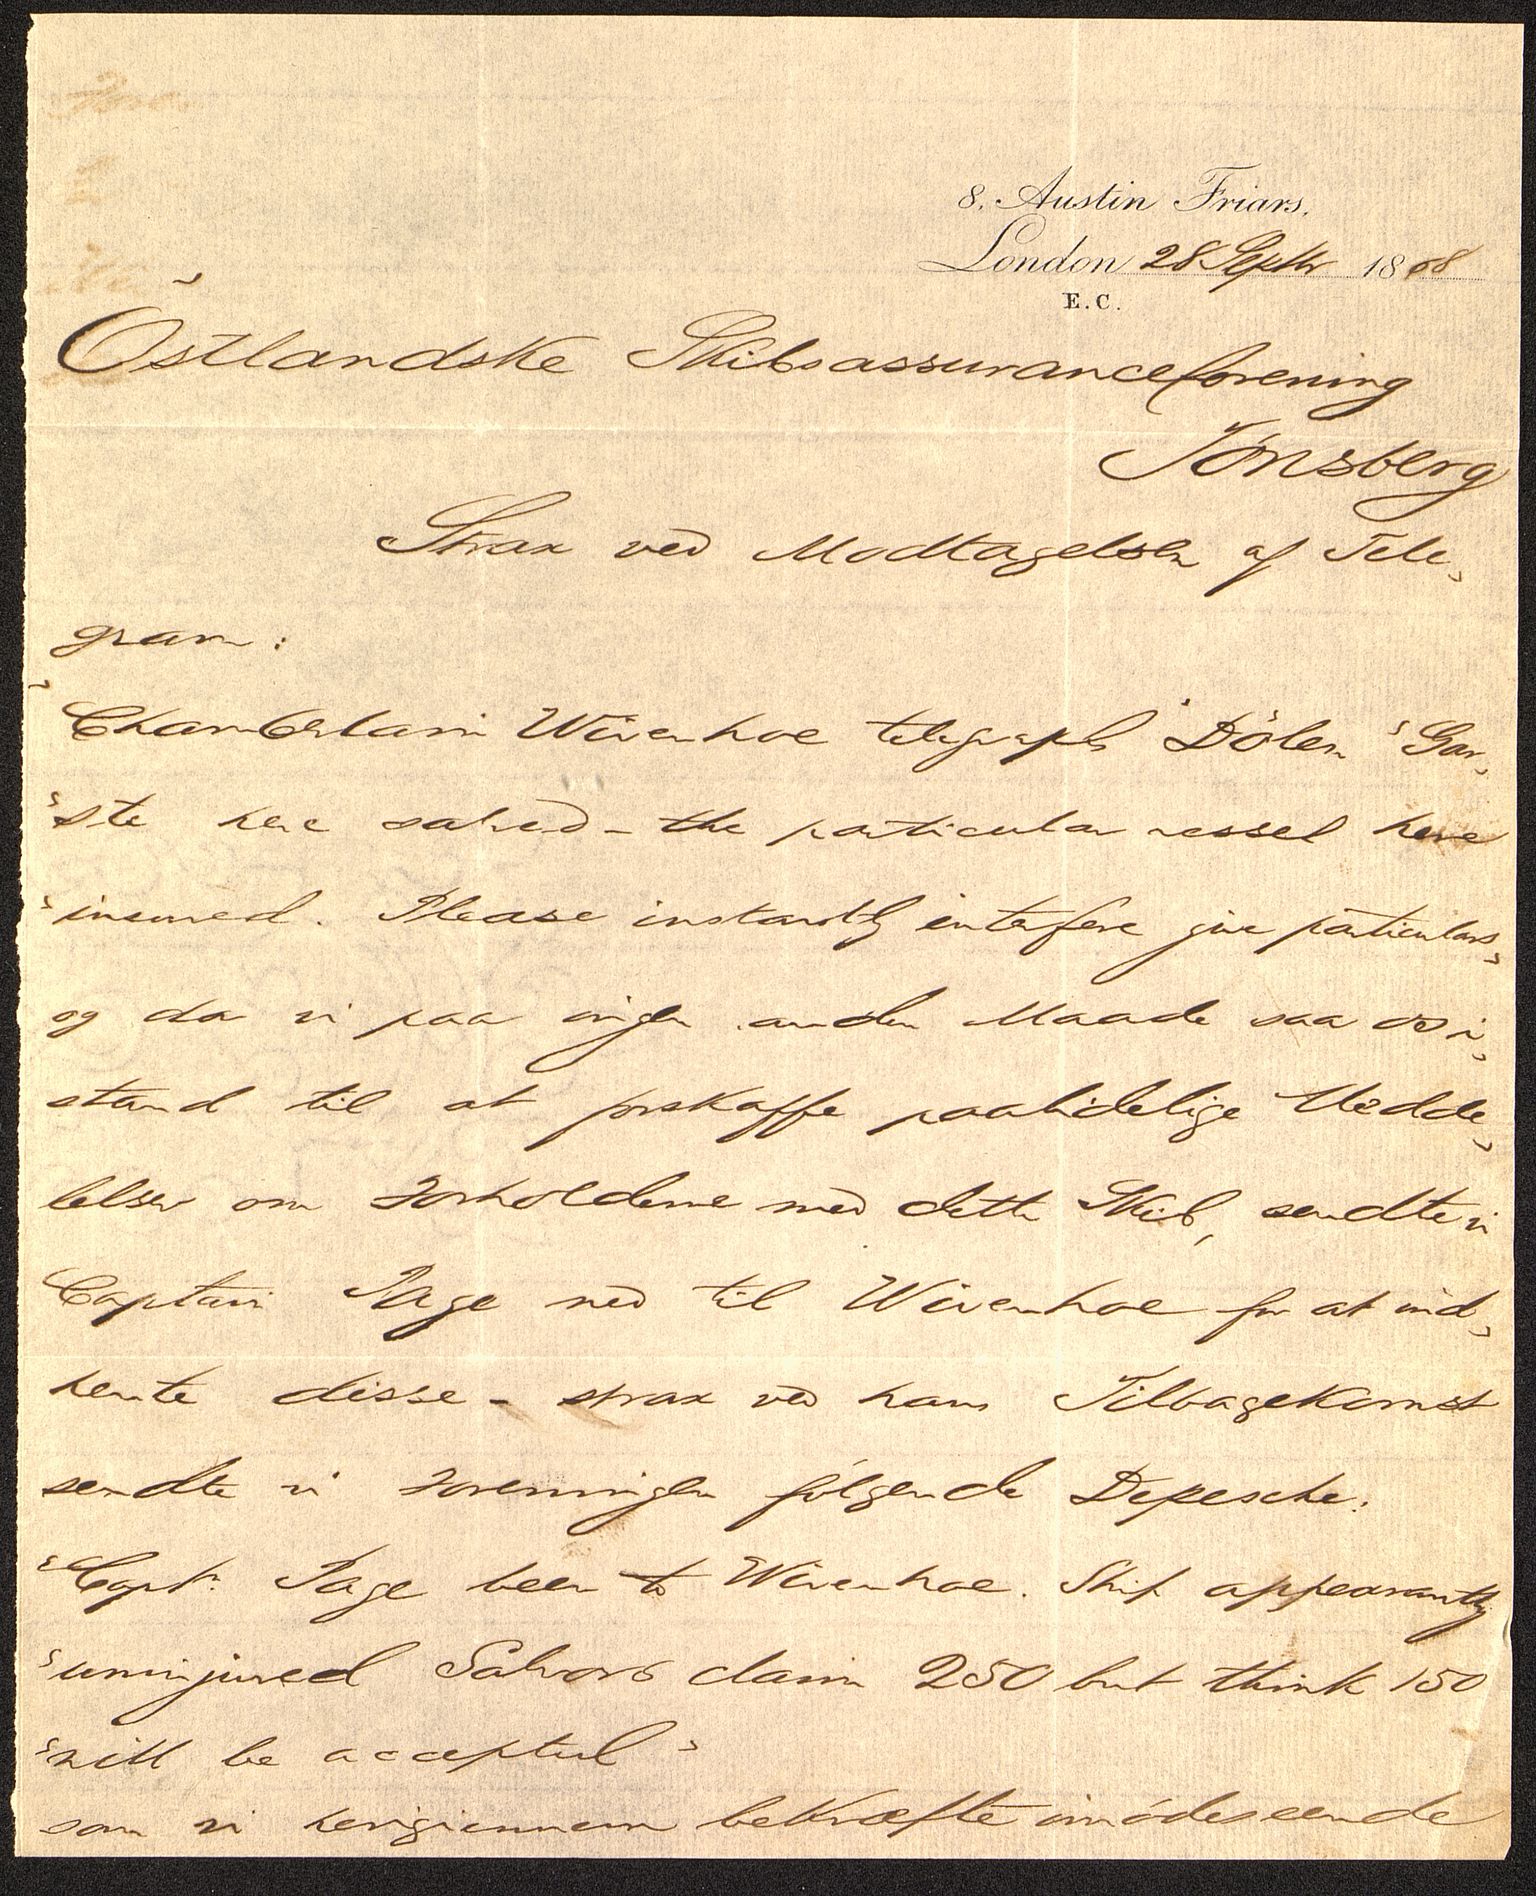 8, Austin Friars,
London 28 Septbr 1868
E.C.
Östlandske Skibsassuranceforening
Tønsberg
Strax ved Modtagelsen af Tele-
gram:
"Chamberlain Wivenhoe telegraph "Dölen" Gar-
"ste here salved - the particular vessel here
"insured. Please instantly interfere give particulars"
og da vi paa ingen anden Maade saa os i-
stand til at forskaffe paalidelige Medde-
lelser om Forholdene med dette Skib, sendte vi
Captain Page ned til Wivenhoe for at ind-
hente disse - strax ved hans Tilbagekomst
sendte vi Foreningen følgende Depesche:
"Capt. Page been to Wivenhoe. Ship appearantly
"uninjured Salvors claim 250 but think 150
"will be accepted"
som vi herigiennem bekræfte imødeseende